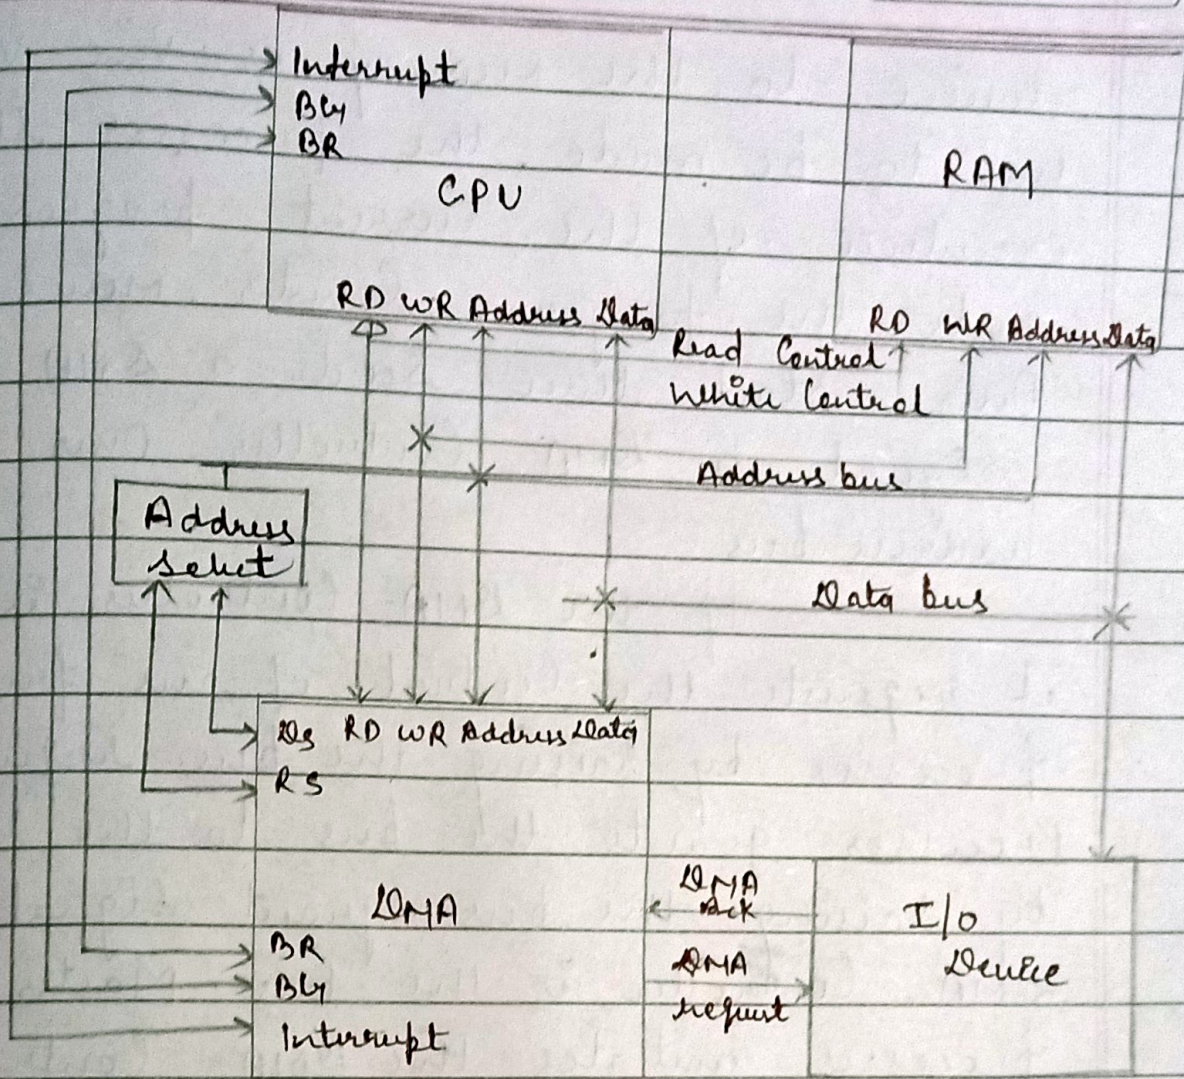 Interrupt
BG
BR
CPU
RAM
RD WR Address Data
RD WR Address Data
Read Control
Write Control
Address bus
Address
select
Data bus
Ds RD WR Address Data
RS
DMA
DMA
Ack
I/O
Device
BR
DMA
BG
request
Interrupt